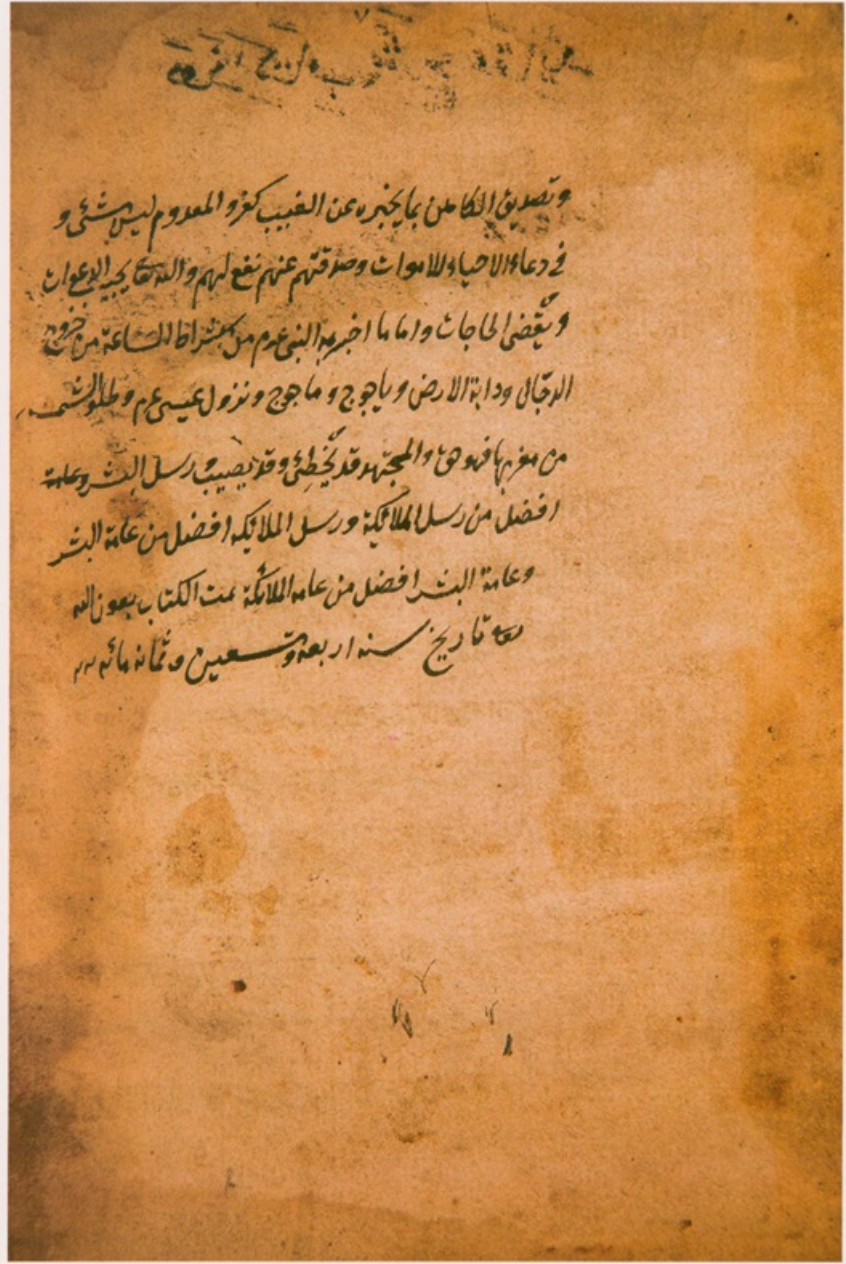 وتصديق الكاهن بما يخبره عن الغيب كفر والمعدوم ليس بشئ و
في دعاء الاحياء للاموات وصدقتهم عنهم نفع لهم والله تعا يجيب الدعوات
ويقضى الحاجات واما ما اخبر به النبي عم من اشراط الساعة من خروج
الدجال ودابة الارض وياجوج وماجوج ونزول عيسى عم وطلوع الشمس
من مغربها فهو حق والمجتهد قد يخطئ وقد يصيب ورسل البشر وعامة
افضل من رسل الملائكة ورسل الملائكه افضل من عامة البشر
وعامة البشر افضل من عامه الملائكة تمت الكتاب بعون الله
تاريخ سنه اربعة وتسعين وثمانه مائه